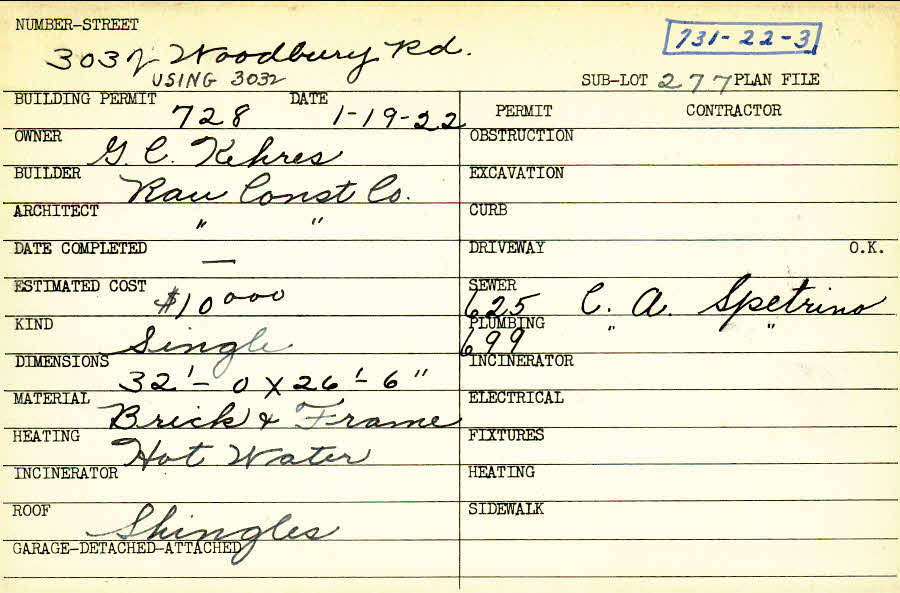 NUMBER-STREET
731-22-3
Woodbury Rd.
USING 3032
SUB-LOT 277 PLAN FILE
BUILDING PERMIT 728 DATE 1-19-22
PERMIT CONTRACTOR
OWNER G. C. Kehres
OBSTRUCTION
BUILDER Rau Const Co.
EXCAVATION
ARCHITECT " "
CURB
DATE COMPLETED —
DRIVEWAY O.K.
ESTIMATED COST $10000
SEWER 625 C. A. Spetrino
KIND Single
PLUMBING 699 " "
DIMENSIONS 32'-0 X 26'-6"
INCINERATOR
MATERIAL Brick & Frame
ELECTRICAL
HEATING Hot Water
FIXTURES
INCINERATOR
HEATING
ROOF Shingles
SIDEWALK
GARAGE-DETACHED-ATTACHED